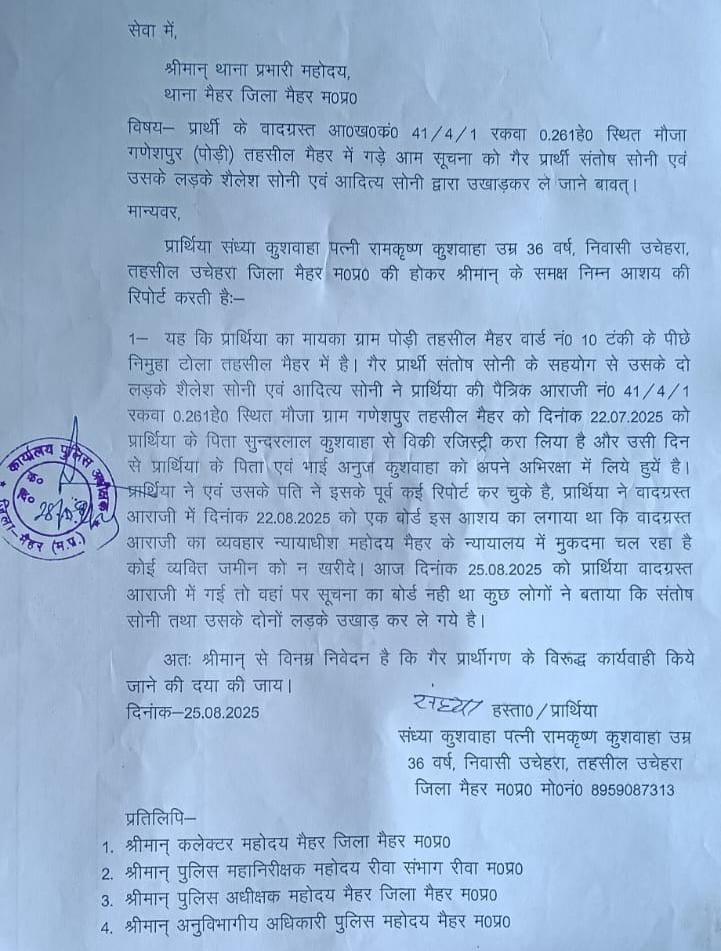 सेवा में,
श्रीमान् थाना प्रभारी महोदय,
थाना मैहर जिला मैहर म०प्र०
विषय– प्रार्थी के वादग्रस्त आ०ख०कं० 41/4/1 रकवा 0.261हे० स्थित मौजा
गणेशपुर (पोड़ी) तहसील मैहर में गड़े आम सूचना को गैर प्रार्थी संतोष सोनी एवं
उसके लड़के शैलेश सोनी एवं आदित्य सोनी द्वारा उखाड़कर ले जाने बावत्।
मान्यवर,
प्रार्थिया संध्या कुशवाहा पत्नी रामकृष्ण कुशवाहा उम्र 36 वर्ष, निवासी उचेहरा,
तहसील उचेहरा जिला मैहर म०प्र० की होकर श्रीमान् के समक्ष निम्न आशय की
रिपोर्ट करती है:–
1– यह कि प्रार्थिया का मायका ग्राम पोड़ी तहसील मैहर वार्ड नं० 10 टंकी के पीछे
निमुहा टोला तहसील मैहर में है। गैर प्रार्थी संतोष सोनी के सहयोग से उसके दो
लड़के शैलेश सोनी एवं आदित्य सोनी ने प्रार्थिया की पैत्रिक आराजी नं० 41/4/1
रकवा 0.261हे० स्थित मौजा ग्राम गणेशपुर तहसील मैहर को दिनांक 22.07.2025 को
प्रार्थिया के पिता सुन्दरलाल कुशवाहा से विकी रजिस्ट्री करा लिया है और उसी दिन
से प्रार्थिया के पिता एवं भाई अनुज कुशवाहा को अपने अभिरक्षा में लिये हुयें है।
प्रार्थिया ने एवं उसके पति ने इसके पूर्व कई रिपोर्ट कर चुके है, प्रार्थिया ने वादग्रस्त
आराजी में दिनांक 22.08.2025 को एक बोर्ड इस आशय का लगाया था कि वादग्रस्त
आराजी का व्यवहार न्यायाधीश महोदय मैहर के न्यायालय में मुकदमा चल रहा है
कोई व्यक्ति जमीन को न खरीदे। आज दिनांक 25.08.2025 को प्रार्थिया वादग्रस्त
आराजी में गई तो वहां पर सूचना का बोर्ड नही था कुछ लोगों ने बताया कि संतोष
सोनी तथा उसके दोनों लड़के उखाड़ कर ले गये है।
अतः श्रीमान् से विनम्र निवेदन है कि गैर प्रार्थीगण के विरूद्ध कार्यवाही किये
जाने की दया की जाय।
दिनांक–25.08.2025
संध्या हस्ता०/प्रार्थिया
संध्या कुशवाहा पत्नी रामकृष्ण कुशवाहा उम्र
36 वर्ष, निवासी उचेहरा, तहसील उचेहरा
जिला मैहर म०प्र० मो०नं० 8959087313
प्रतिलिपि–
1. श्रीमान् कलेक्टर महोदय मैहर जिला मैहर म०प्र०
2. श्रीमान् पुलिस महानिरीक्षक महोदय रीवा संभाग रीवा म०प्र०
3. श्रीमान् पुलिस अधीक्षक महोदय मैहर जिला मैहर म०प्र०
4. श्रीमान् अनुविभागीय अधिकारी पुलिस महोदय मैहर म०प्र०
कार्यालय पुलिस अधीक्षक
क्र०
दि०
जिला–मैहर (म.प्र.)